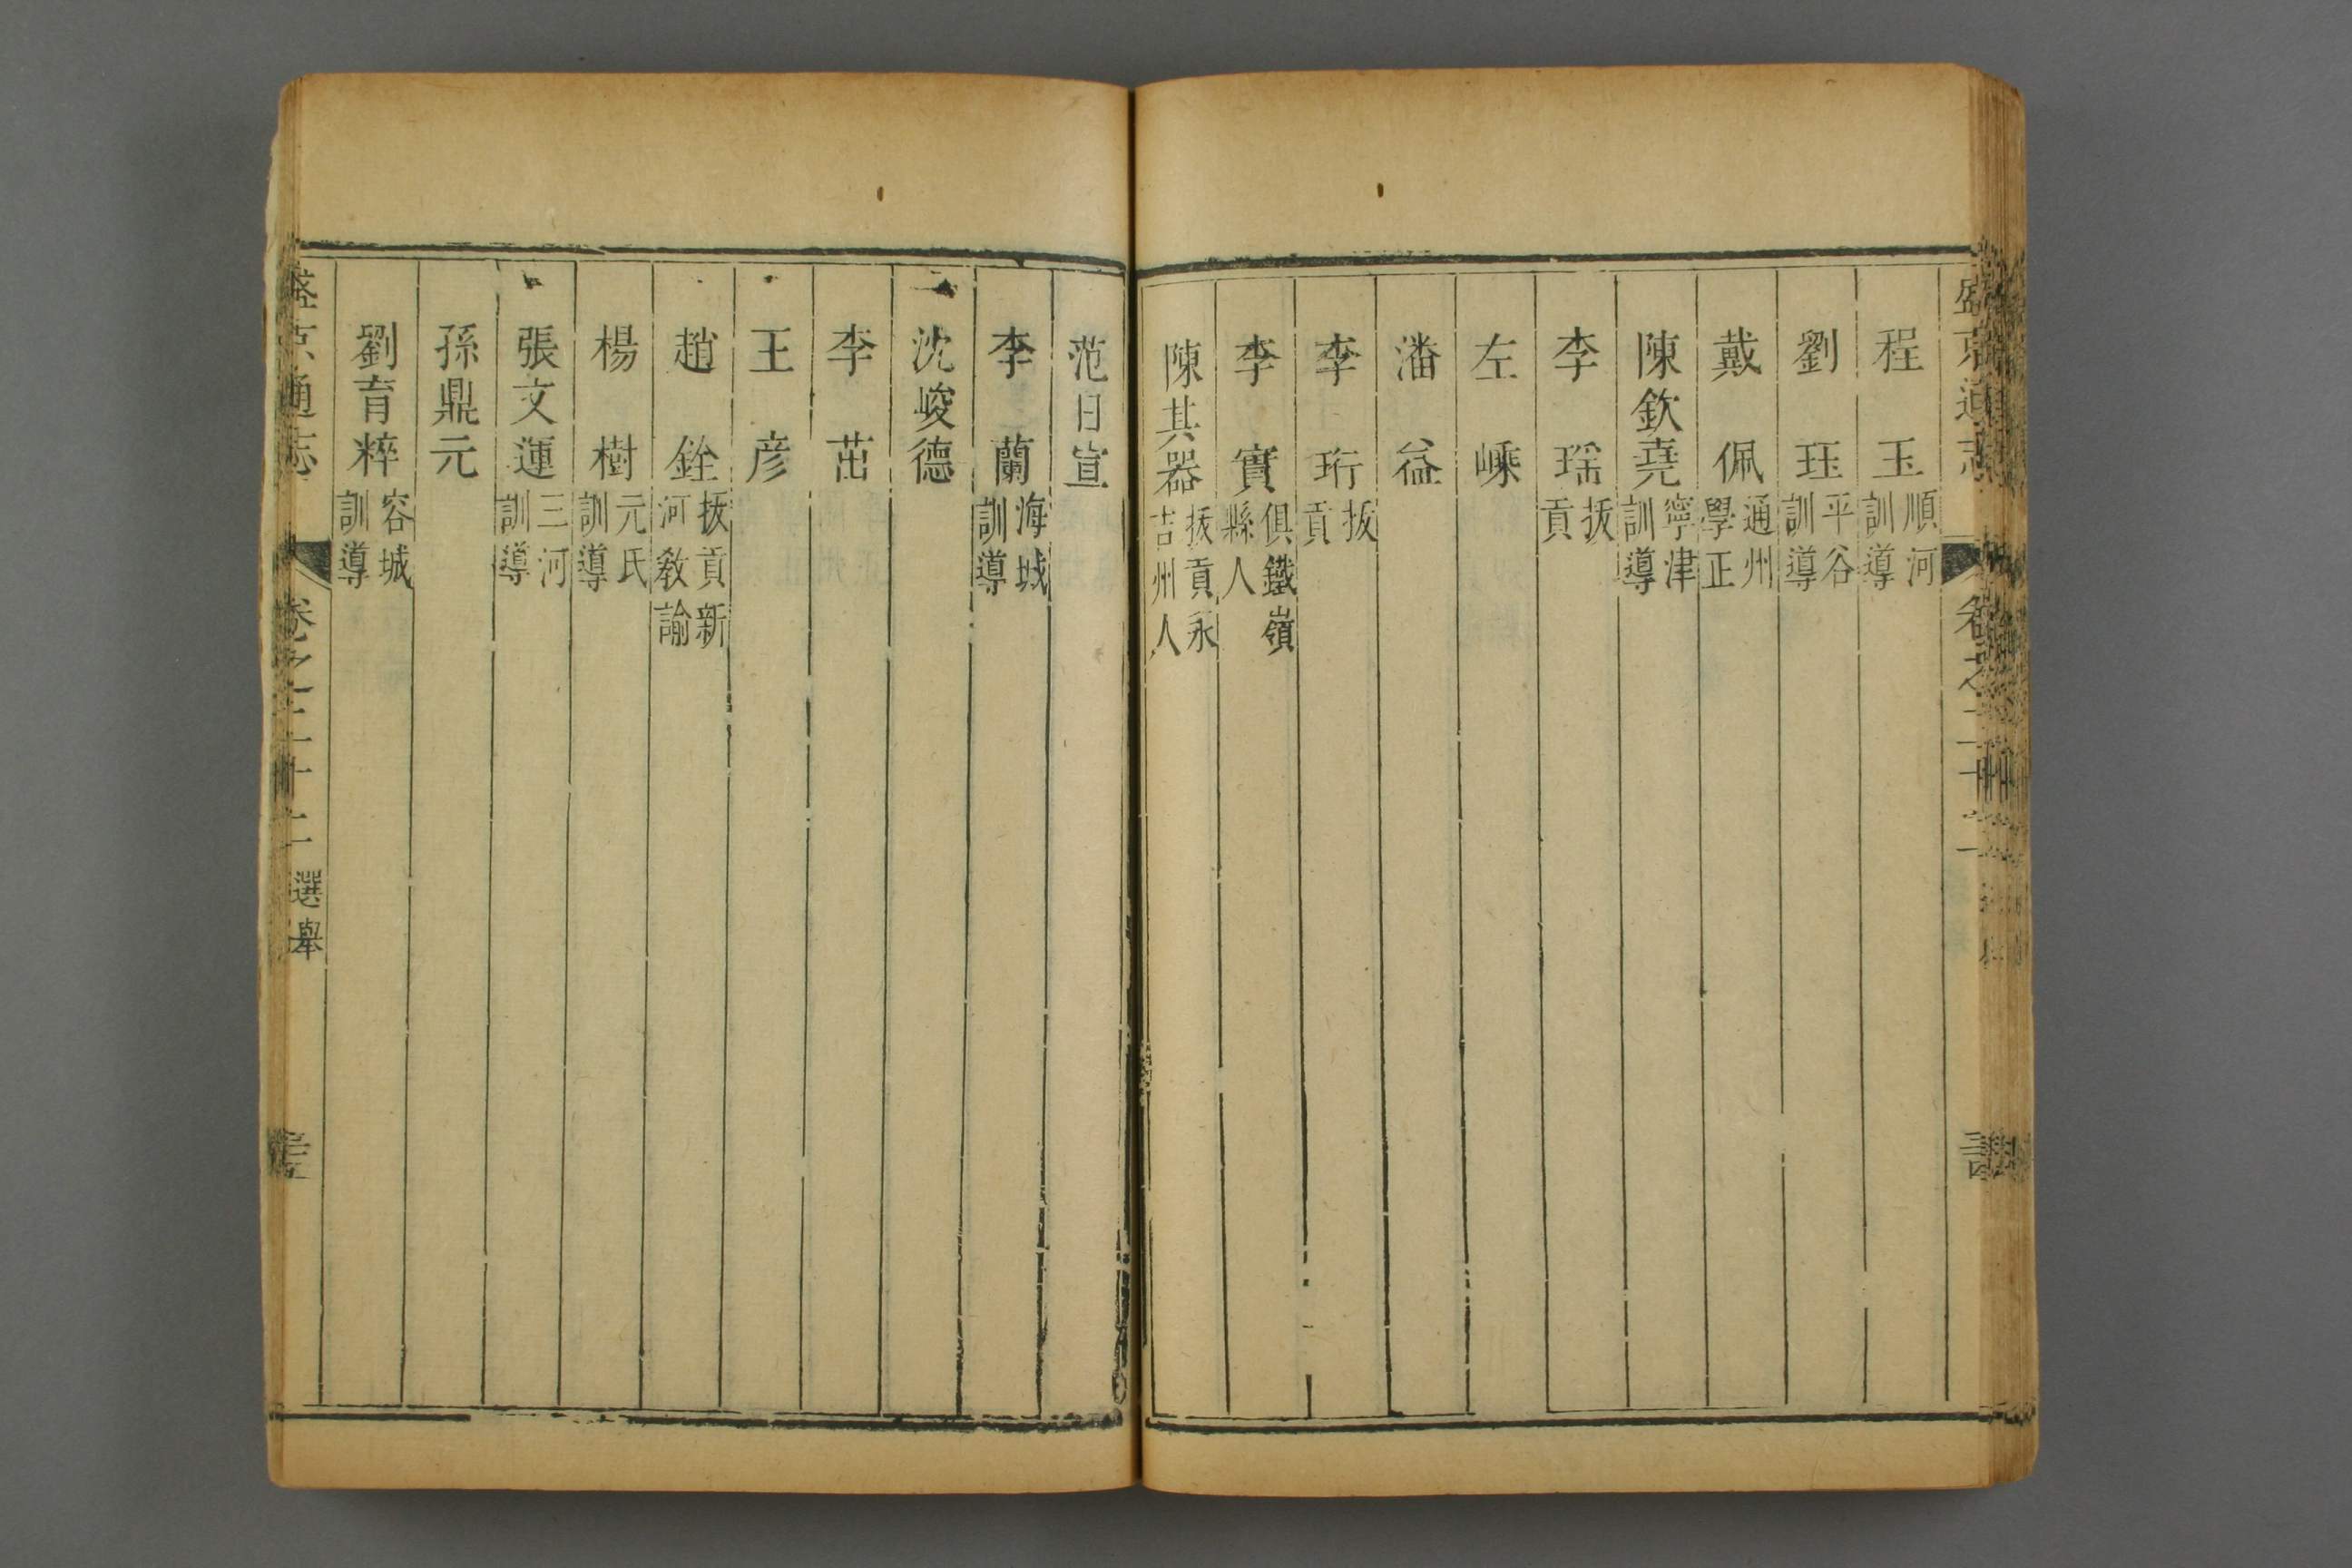 盛京通志 卷之二十二
程玉 順河訓導
劉玨 平谷訓導
戴佩 通州學正
陳欽堯 寧津訓導
李瑶 抜貢
左嵊
潘益
李珩 抜貢
李實 俱鐵嶺縣人
陳其器 抜貢永吉州人
范日宣
李蘭 海城訓導
沈峻德
李茁
王彦
趙銓 抜貢新河教諭
楊樹 元氏訓導
張文運 三河訓導
孫鼎元
劉育粹 容城訓導
盛京通志 卷之二十二 選舉